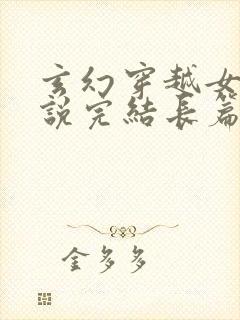 玄幻穿越女
說完結長篇
金多多